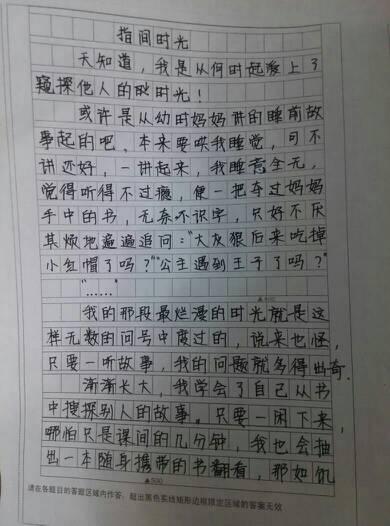 指间时光
天知道，我是从何时起爱上了
窥探他人的时光！
或许是从幼时妈妈讲的睡前故
事起的吧。本来要哄我睡觉，可不
讲还好，一讲起来，我睡意全无，
觉得听得不过瘾，便一把夺过妈妈
手中的书，无奈不识字，只好不厌
其烦地遍遍追问："大灰狼后来吃掉
小红帽了吗？""公主遇到王子了吗？"
"……"
▲400
我的那段最烂漫的时光就是这
样无数的问号中度过的，说来也怪，
只要一听故事，我的问题就多得出奇.
渐渐长大，我学会了自己从书
中搜探别人的故事。只要一闲下来，
哪怕只是课间的几分钟，我也会抽
出一本随身携带的书翻看，那如饥
▲500
请在各题目的答题区域内作答，超出黑色实线矩形边框限定区域的答案无效